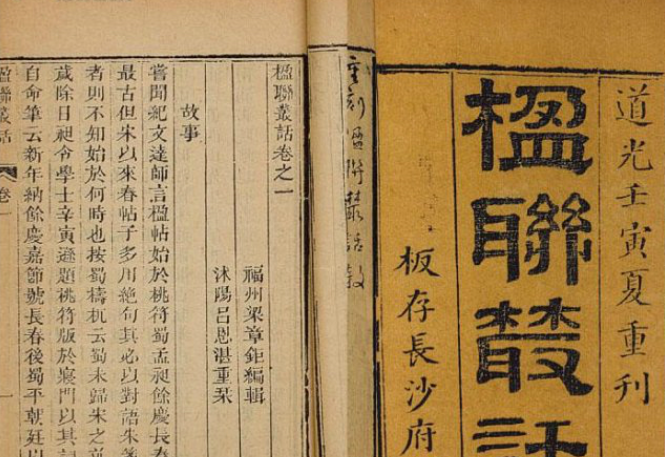 道光壬寅夏重刊
楹聯叢話
板存長沙府
重刻楹聯叢話敘
楹聯叢話卷之一
福州梁章鉅編輯
沭陽呂恩湛重栞
故事
嘗聞紀文達師言楹帖始於桃符蜀孟昶餘慶長春
最古但宋以來春帖子多用絕句其必以對語朱箋
者則不知始於何時也按蜀檮杌云蜀未歸宋之前
歲除日昶令學士辛寅遜題桃符版於寢門以其詞
自命筆云新年納餘慶嘉節號長春後蜀平朝廷以
楹聯叢話 卷一